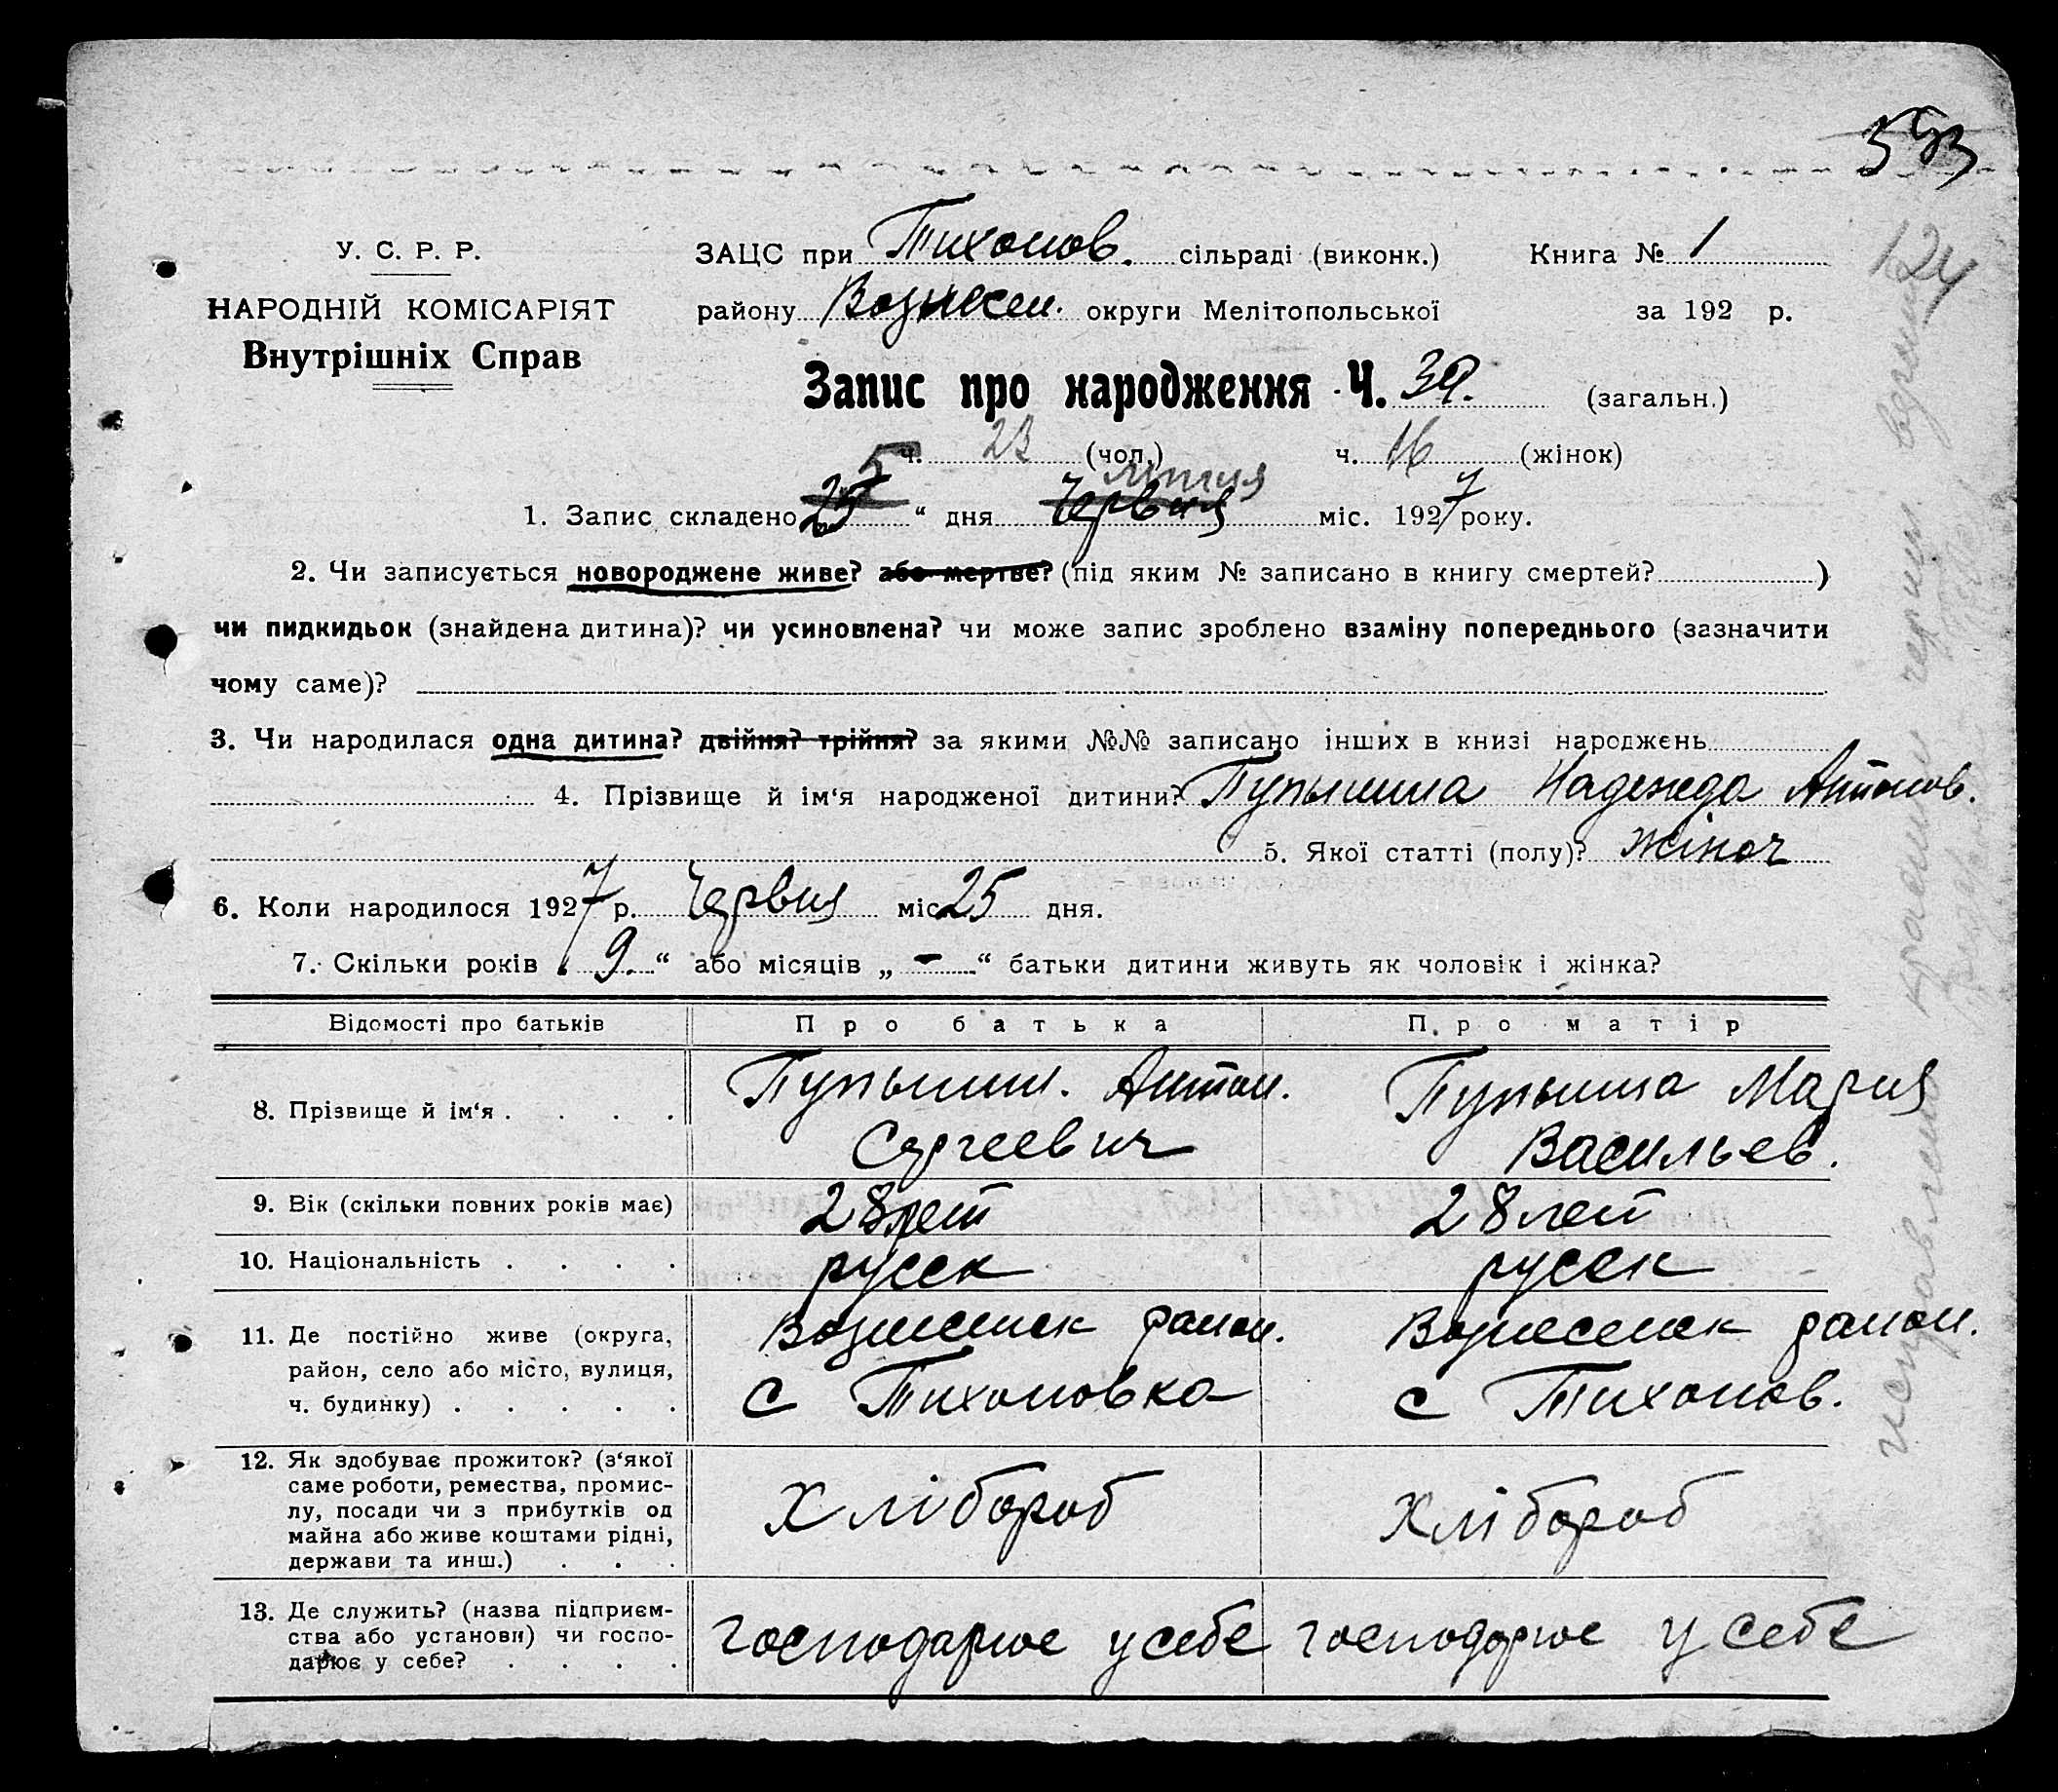 593
124
У. С. Р. Р.
НАРОДНІЙ КОМІСАРІЯТ
Внутрішніх Справ
ЗАЦС при Тихонов. сільраді (виконк.) Книга № 1
району Вознесен. округи Мелітопольської за 192 р.
Запис про народження Ч. 39. (загальн.)
ч. 23 (чол.) ч. 16 (жінок)
5 липця
1. Запис складено 25 “ дня Червня міс. 1927 року.
2. Чи записується новороджене живе? або мертве? (під яким № записано в книгу смертей? )
чи пидкидьок (знайдена дитина)? чи усиновлена? чи може запис зроблено взаміну попереднього (зазначити
чому саме)?
3. Чи народилася одна дитина? двійня? трійня? за якими №№ записано інших в книзі народжень
4. Прізвище й ім‘я народженої дитини? Пупынина Надежда Антонов.
5. Якої статті (полу)? жіноч
6. Коли народилося 1927 р. Червня міс 25 дня.
7. Скільки років „ 9. “ або місяців „ - “ батьки дитини живуть як чоловік і жінка?
Відомості про батьків Про батька Про матір
8. Прізвище й ім‘я . . . . Пупынин. Антон. Сергеевич Пупынина Мария Васильев.
9. Вік (скільки повних років має) 28 лет 28 лет
10. Національність . . . . русск русск
11. Де постійно живе (округа,
район, село або місто, вулиця,
ч. будинку) . . . . .
Вознесенск район.
с Тихоновка
Вознесенск район.
с Тихонов.
12. Як здобуває прожиток? (з‘якої
саме роботи, ремества, промис-
лу, посади чи з прибутків од
майна або живе коштами рідні,
держави та инш.) . . .
Хлібороб Хлібороб
13. Де служить? (назва підприєм-
ства або установи) чи госпо-
дарює у себе? . . . .
господарює у себе господарює у себе
исправлено красными чернил